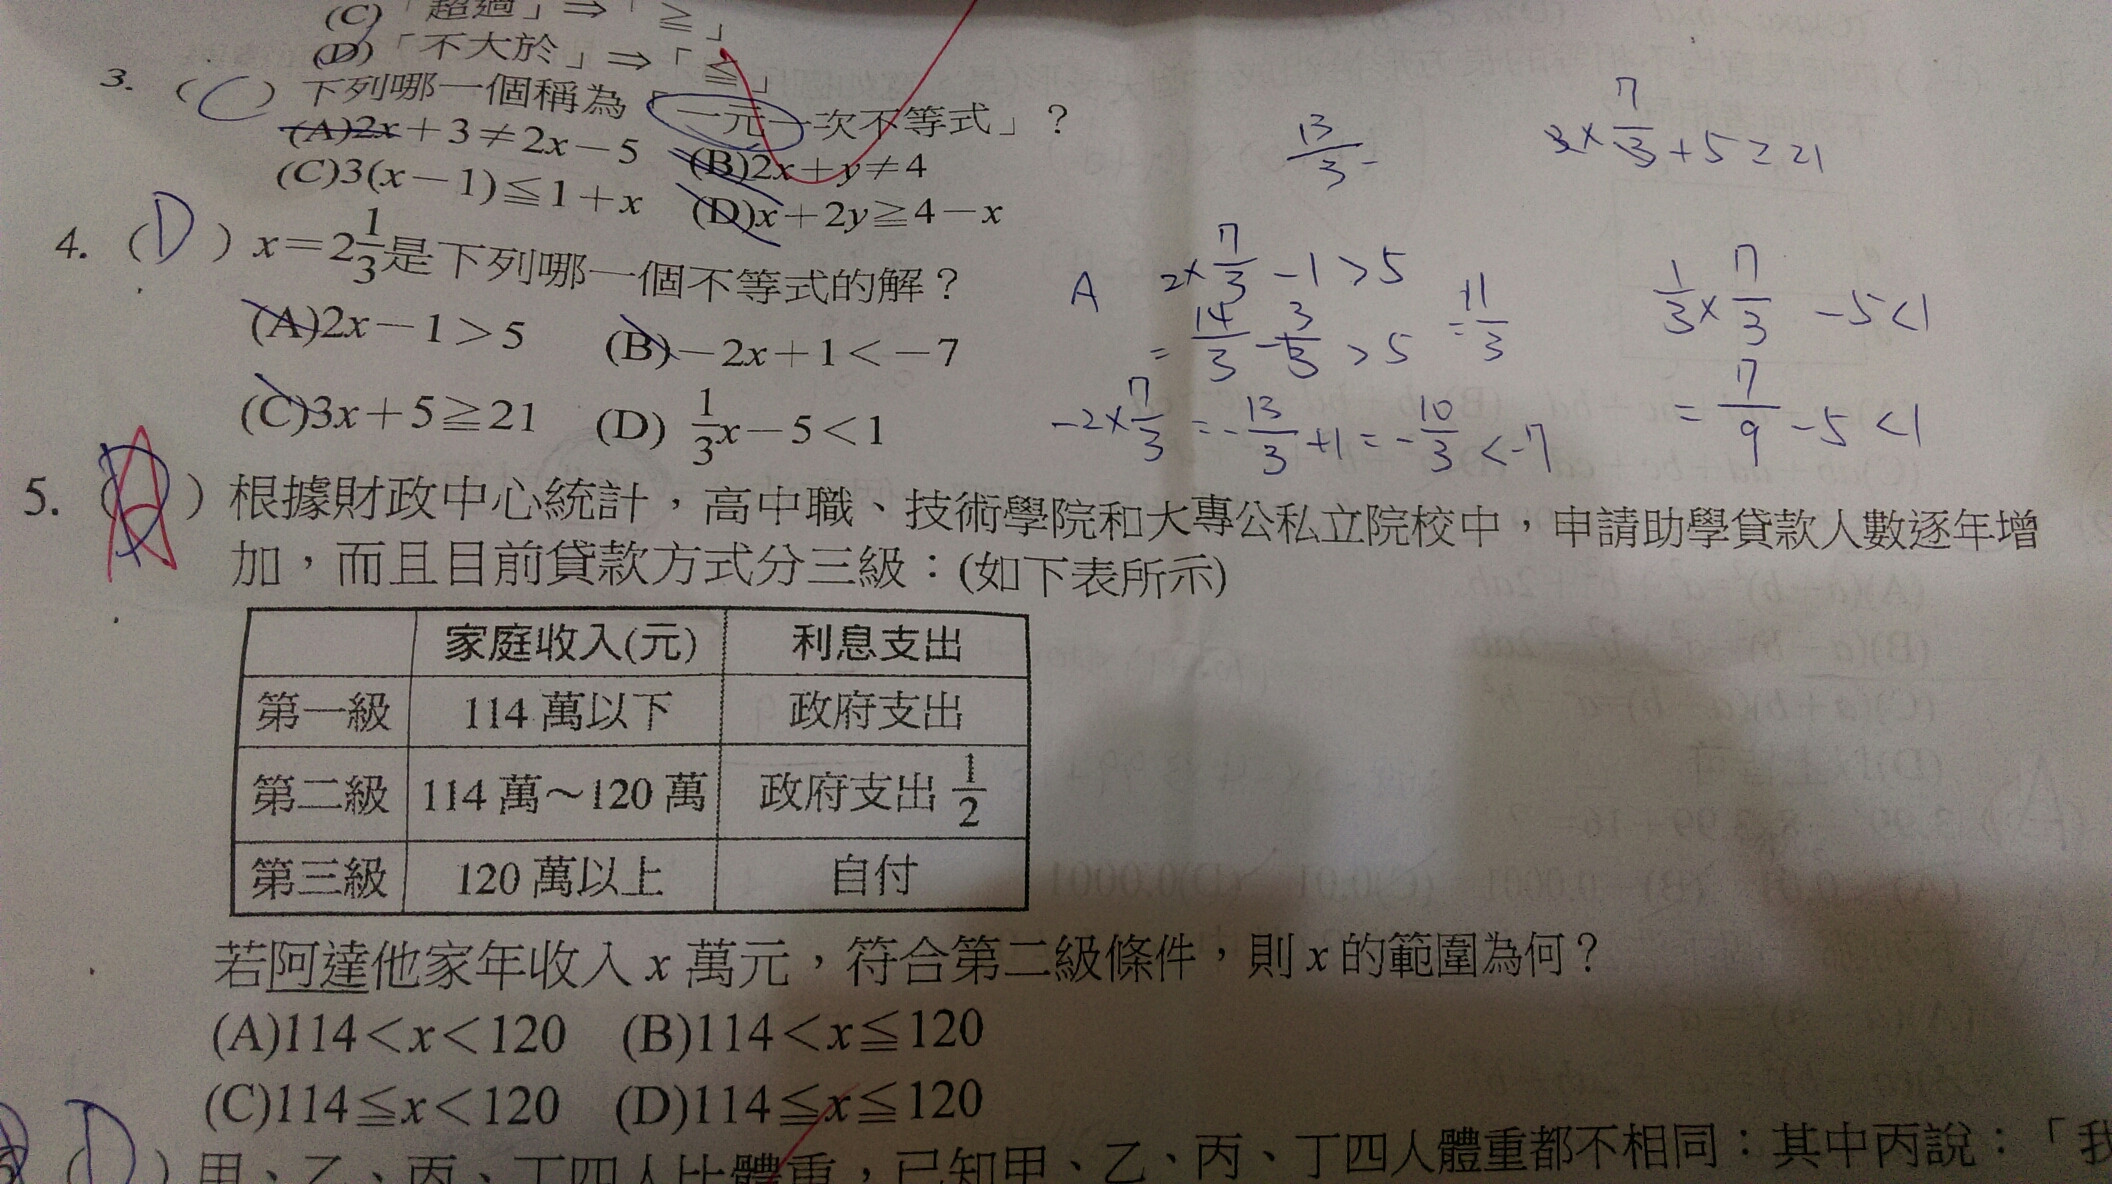 (C)「超過」⇒「≧」
(D)「不大於」⇒「≦」
3. (C) 下列哪一個稱為「一元一次不等式」？
(A)2x+3≠2x-5 (B)2x+y≠4
(C)3(x-1)≦1+x (D)x+2y≧4-x
13/3 -
3×7/3+5≥21
4. (D) x=2 1/3是下列哪一個不等式的解？
(A)2x-1>5 (B)-2x+1<-7
(C)3x+5≧21 (D) 1/3x-5<1
A 2×7/3-1>5
=14/3-3/3>5 =11/3
-2×7/3=-13/3+1=-10/3<-7
1/3×7/3-5<1
=7/9-5<1
5. (A) 根據財政中心統計，高中職、技術學院和大專公私立院校中，申請助學貸款人數逐年增
加，而且目前貸款方式分三級：(如下表所示)
家庭收入(元) 利息支出
第一級 114萬以下 政府支出
第二級 114萬～120萬 政府支出1/2
第三級 120萬以上 自付
若阿達他家年收入x萬元，符合第二級條件，則x的範圍為何？
(A)114<x<120 (B)114<x≦120
(C)114≦x<120 (D)114≦x≦120
(D) 甲、乙、丙、丁四人比體重，已知甲、乙、丙、丁四人體重都不相同：其中丙說：「我